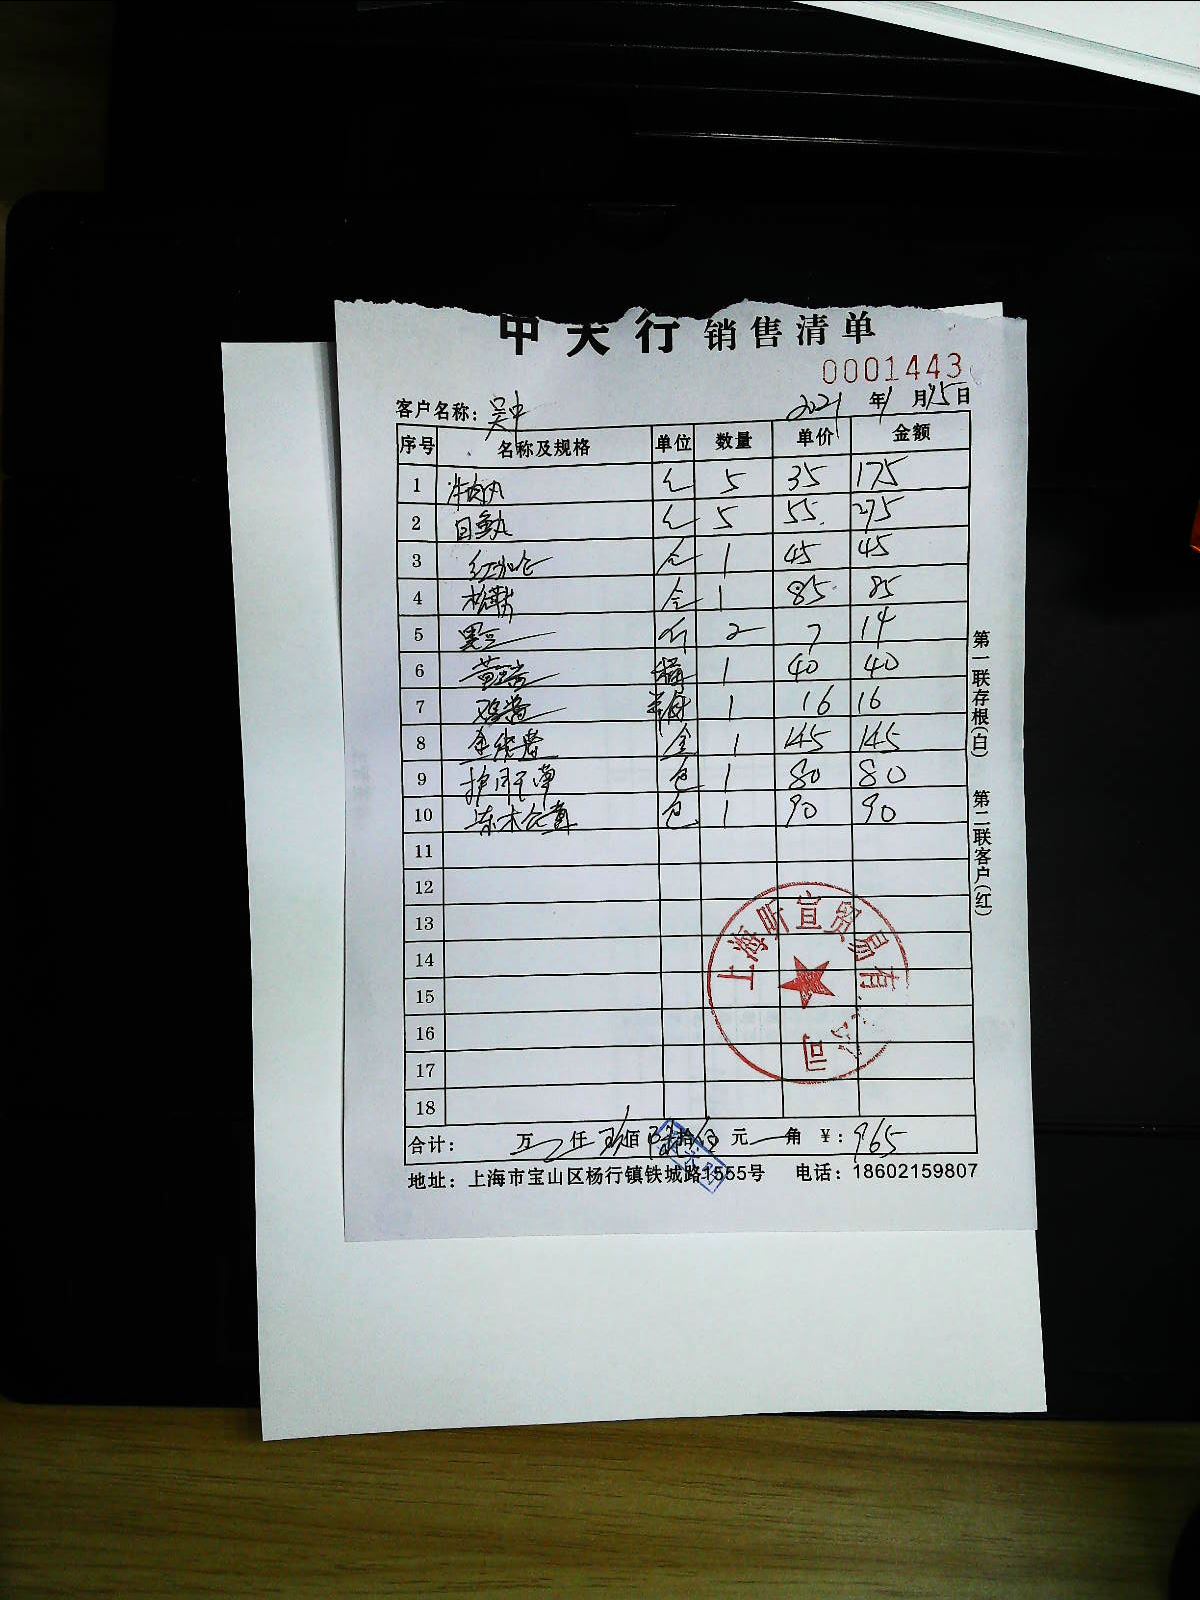 中天行 销售清单
0001443
客户名称：吴中 2021年1月15日
序号 名称及规格 单位 数量 单价 金额
1 牛肉丸 5 35 175
2 目鱼丸 5 55 275
3 1 45 45
4 1 85 85
5 黑豆 斤 2 7 14
6 1 40 40
7 鸡酱 1 16 16
8 1 145 145
9 包 1 80 80
10 包 1 90 90
11
12
13
14
15
16
17
18
合计： 万 仟 玖佰 陆拾伍元 角 ¥：965
地址：上海市宝山区杨行镇铁城路1555号 电话：18602159807
第一联存根(白) 第二联客户(红)
上海昕宣贸易有限公司